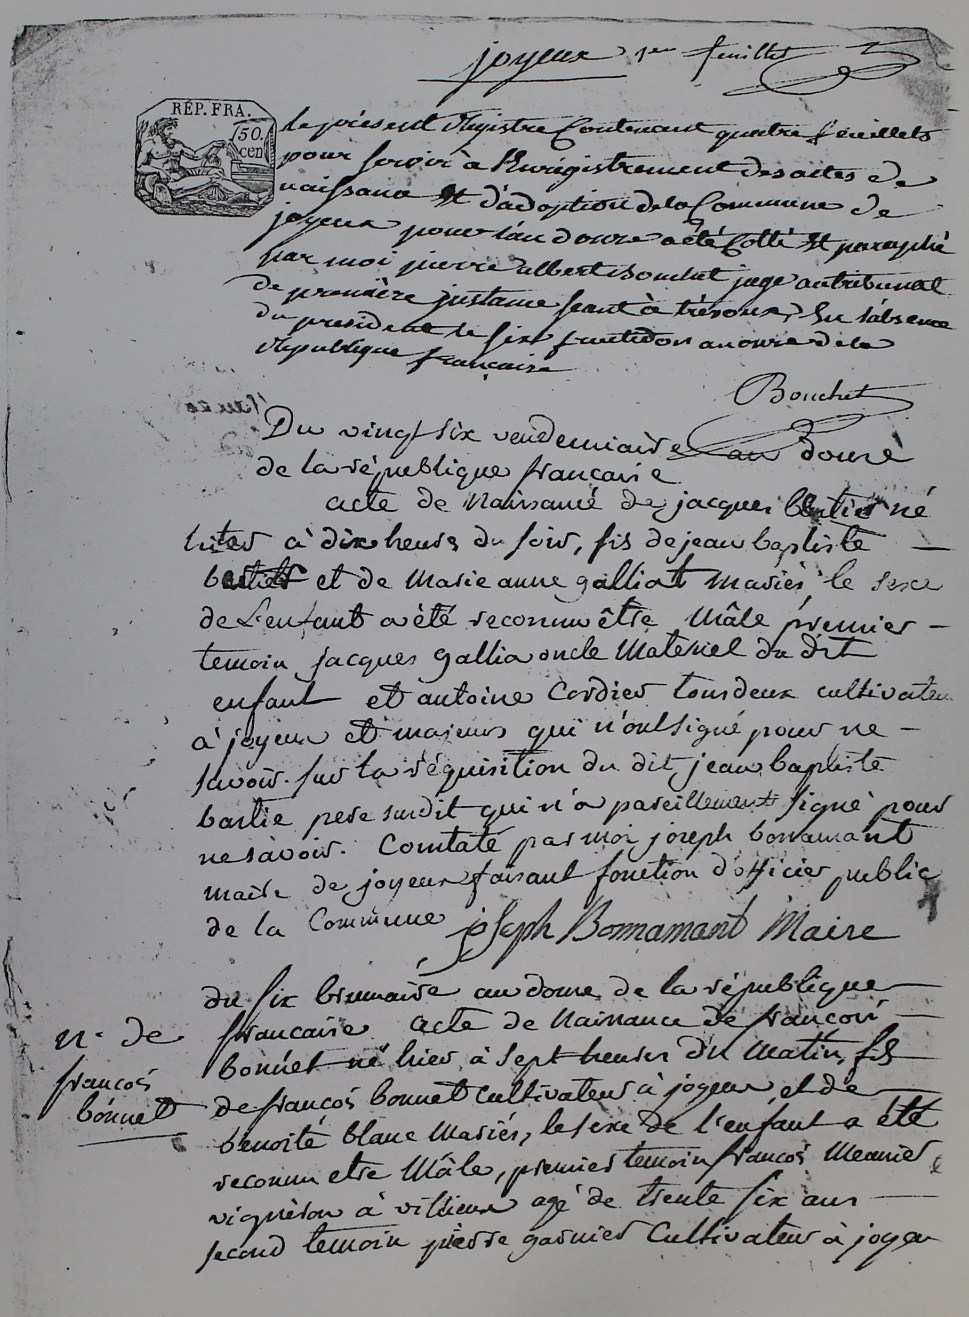 joyeux 1er feuillet
RÉP. FRA.
50.
cen
le présent Registre Contenant quatre feuillets
pour servir à l'Enrigistrement des actes de
naissance Et d'adoption de la Commune de
joyeux pour l'an douze a été Cotté Et paraphé
par moi pierre albert Bouchet juge au tribunal
de première instance seant à trévoux, En l'absence
du president le six fructidor an onze de la
Republique française
Bouchet
Du vingt six vendemiaire an douzé
de la république francaise
acte de Naissance de jacques né
hier à dix heures du soir, fis de jean baptiste
et de Marie anne galliat mariés, le sexe
de L'enfant a été reconnu être Mâle premier
temoin jacques gallia oncle Maternel du dit
enfant et antoine Cordier tous deux cultivateur
à joyeux et majeurs qui n'ont signé pour ne
savoir. sur la réquisition du dit jean baptiste
bartie pere susdit qui n'a pareillement signé pour
ne savoir. Constaté par moi joseph bonnamant
maire de joyeux faisant fonction d'officier public
de la Commune joseph Bonnamant Maire
du six brumaire an douze de la république
francaise acte de Naissance de françois
bonnet né hier à sept heures du matin, fis
n. de
françois
bonnet
de françois bonnet Cultivateur à joyeux, et de
benoite blanc Mariés, le sexe de l'enfant a été
reconnu etre Mâle, premier temoin françois Meunier
vigneron à villieux agé de trente six ans
second temoin pierre garnier Cultivateur à joyeu